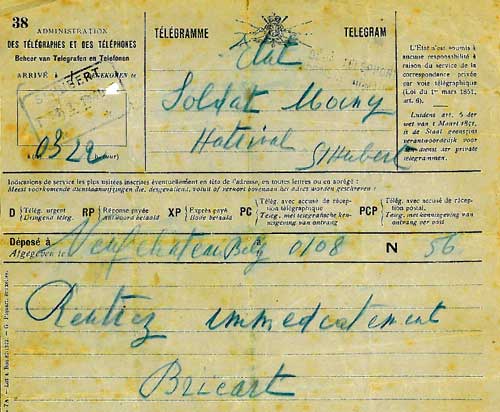 38
ADMINISTRATION
DES TÉLÉGRAPHES ET DES TÉLÉPHONES
Beheer van Telegrafen en Telefonen
ARRIVÉ à
TÉLÉGRAMME
TELEGRAM
L'État n'est soumis à
aucune responsabilité à
raison du service de la
correspondance privée
par voie télégraphique
(Loi du 1er mars 1851,
art. 6).
Luidens art. 6 der
wet van 1 Maart 1851,
is de Staat geenszins
verantwoordelijk voor
den dienst der private
telegrammen.
Etat
Soldat
Hatrival
St Hubert
Indications de service les plus usitées inscrites éventuellement en tête de l'adresse, en toutes lettres ou en abrégé :
Meest voorkomende dienstaanwijzingen die, desgevallend, voluit of verkort bovenaan het adres worden geschreven :
D Télég. urgent Dringend teleg.
RP Réponse payée Antwoord betaald
XP Exprès payé Bode betaald
PC Télég. avec accusé de réception télégraphique Teleg. met telegrafische kennisgeving van ontvangst
PCP Télég. avec accusé de réception postal. Teleg. met kennisgeving van ontvangst per post
Déposé à Neufchateau Belg à 0108 N 56
Afgegeven te
Rentrez immediatement
Bricart